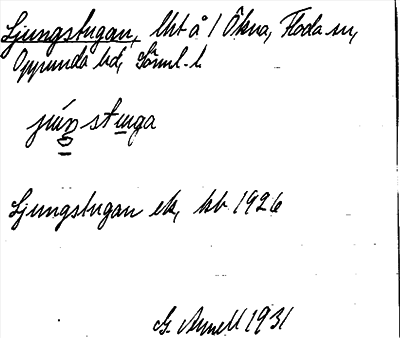 Ljungstugan, lht å 1 Ökna, Floda sn,
Oppunda hd, Sörml. l.
Ljungstugan ek, kb 1926
G. Annell 1931